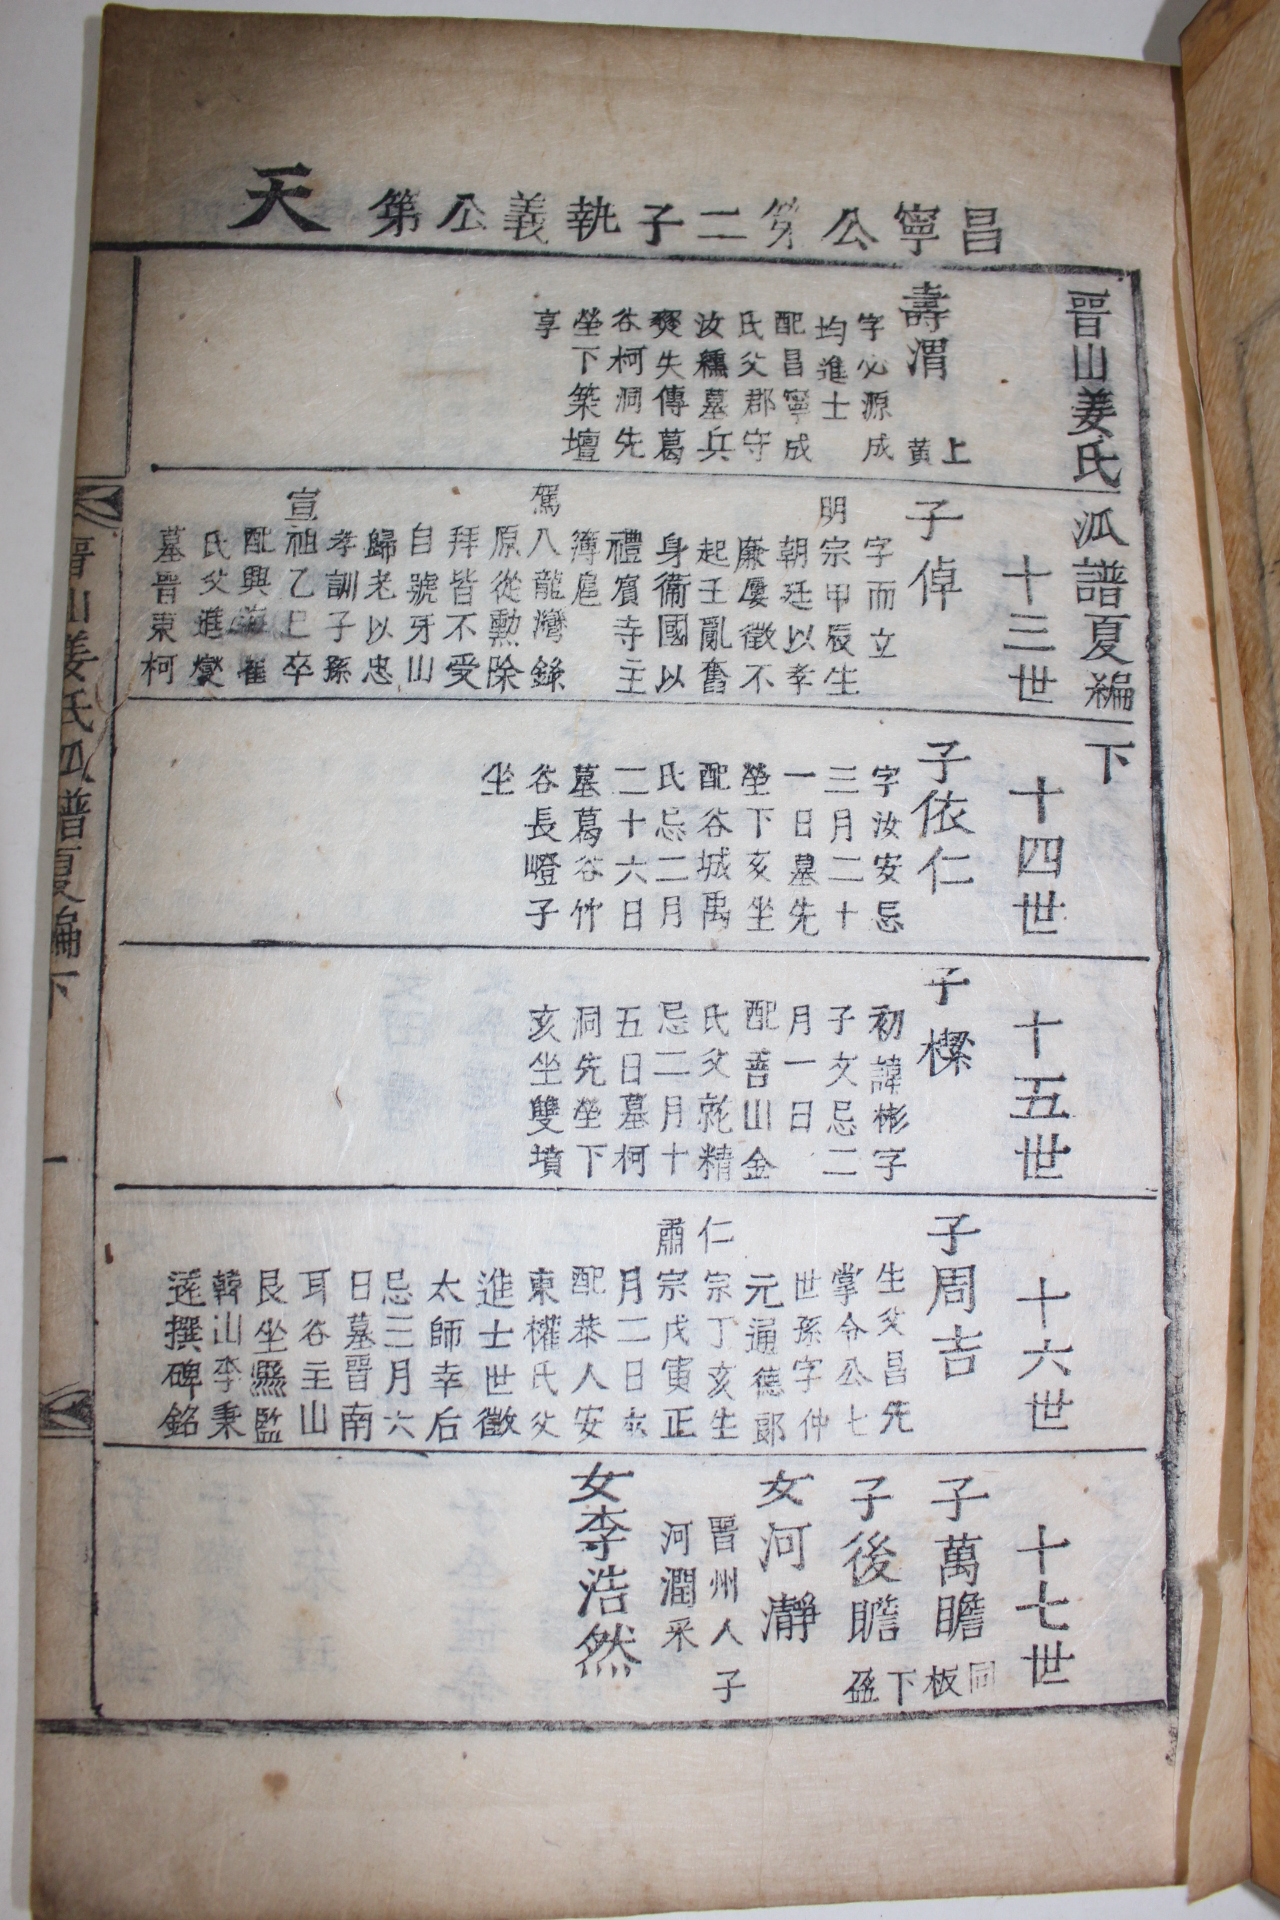 昌寧公第二子執義公第 天
晉山姜氏派譜夏編下
壽渭 上黃
字必源成
均進士
配昌寧成
氏父郡守
汝櫄墓兵
燹失傳葛
谷柯洞先
塋下築壇
享
十三世
子倬
字而立
明宗甲辰生
朝廷以孝
廉屢徵不
起壬亂奮
身衛國以
禮賓寺主
簿扈
駕入龍灣錄
原從勲除
拜皆不受
自號牙山
歸老以忠
孝訓子孫
宣祖乙巳卒
配興海崔
氏父進燮
墓晋東柯
十四世
子依仁
字汝安忌
三月二十
一日墓先
塋下亥坐
配谷城禹
氏忌二月
二十六日
墓葛谷竹
谷長嶝子
坐
十五世
子櫟
初諱彬字
子文忌二
月一日
配善山金
氏父就精
忌二月十
五日墓柯
洞先塋下
亥坐雙墳
十六世
子周吉
生父昌先
掌令公七
世孫字仲
元通德郞
仁宗丁亥生
肅宗戊寅正
月二日卒
配恭人安
東權氏父
進士世徵
太師幸后
忌三月六
日墓晋南
耳谷主山
艮坐縣監
韓山李秉
遂撰碑銘
十七世
子萬瞻 同板
子後瞻 下盈
女河瀞
晋州人 子
河潤采
女李浩然
晉山姜氏派譜夏編下 一